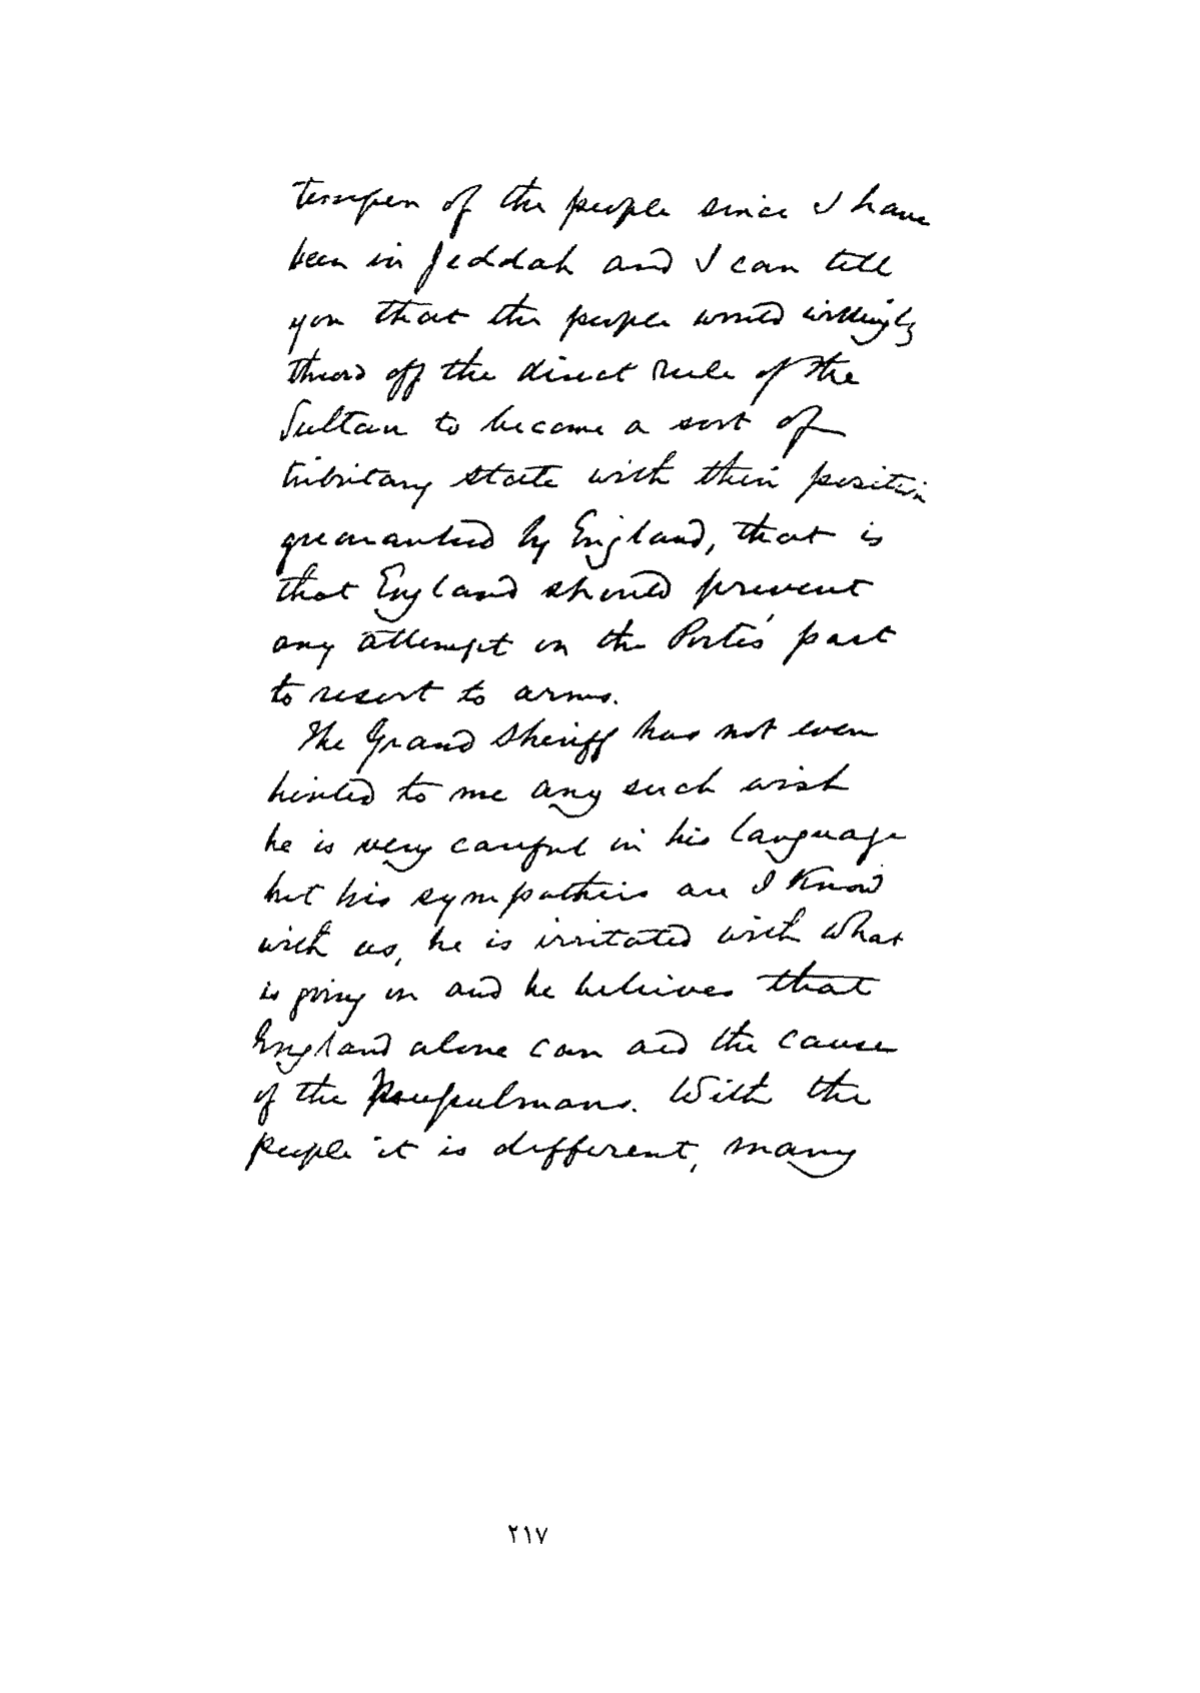 temper of the people since I have
been in Jeddah and I can tell
you that the people would willingly
throw off the direct rule of the
Sultan to become a sort of
tribitary state with their position
guaranteed by England, that is
that England should prevent
any attempt on the Porte's part
to resort to arms.
The Grand Sheriff has not even
hinted to me any such wish
he is very careful in his language
but his sympathies are I know
with us, he is irritated with what
is going on and he believes that
England alone can aid the cause
of the
people it is different, many
With the
٢١٧